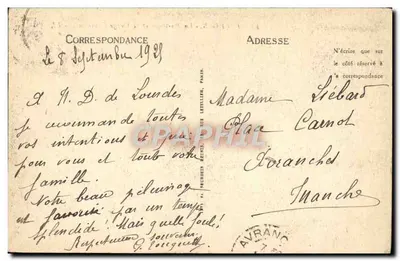 CORRESPONDANCE
ADRESSE
Le 8 Septembre 1925
N'écrire que sur
le côté réservé à
la correspondance
A N. D de Lourdes
je recommande toutes
vos intentions et prie
pour vous et toute votre
famille.
Notre beau pélerinage
est favorisé par un temps
splendide! Mais quelle foule!
Respectueux souvenir
Madame Liébard
Place Carnot
Avranches
Manche
AVRANC